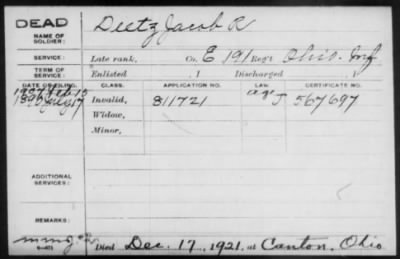 DEAD
NAME OF SOLDIER: Deetz, Jacob R
SERVICE: Late rank, Co. E 191 Reg't Ohio. Inf
TERM OF SERVICE: Enlisted , 1 Discharged , 1
DATE OF FILING. CLASS. APPLICATION NO. LAW. CERTIFICATE NO.
1907 Feb 15
1890 July 17 Invalid, 811721 567697
Widow,
Minor,
ADDITIONAL SERVICES:
REMARKS:
Died Dec. 17, 1921, at Canton, Ohio